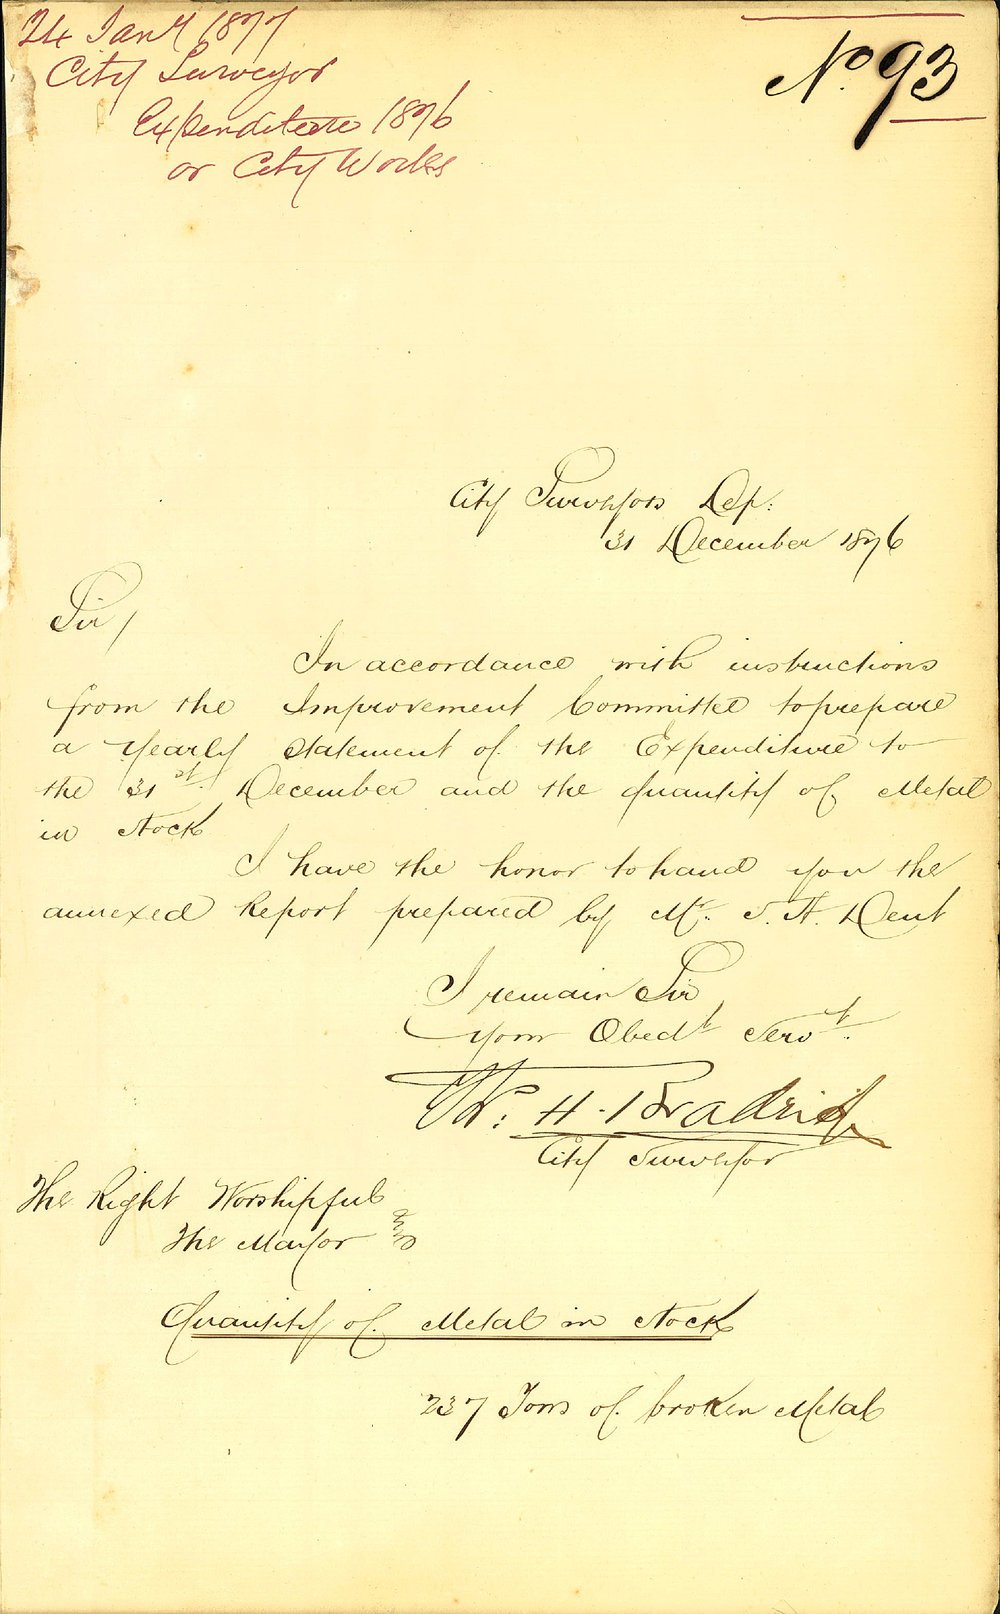 24 Jany 1877
City Surveyor
Expenditure 1876
on City Works
No. 93
City Surveyors Dep:
31 December 1876
Sir/
In accordance with instructions
from the Improvement Committee to prepare
a yearly statement of the Expenditure to
the 31st. December and the quantity of Metal
in stock
I have the honor to hand you the
annexed Report prepared by Mr. J. A. Dent
I remain Sir
Your Obedt Servt.
W. H. Bradridge
City Surveyor
The Right Worshipful
The Mayor
Quantity of Metal in Stock
237 Tons of broken Metal